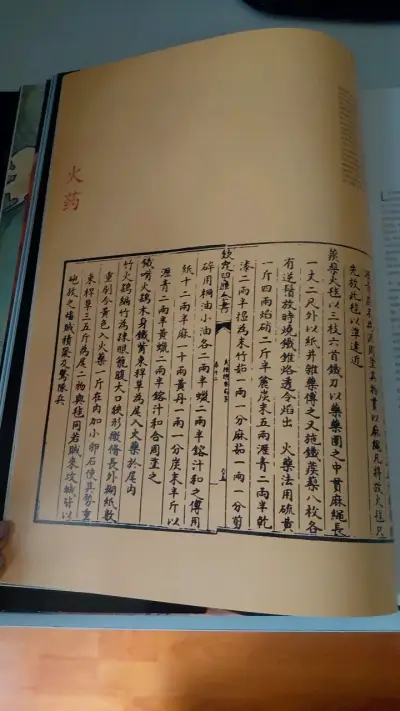 火药
青炭末為泥周塗其物貫以麻繩凡將放火毬只
先放此毬以準遠近
蒺藜火毬以三枝六首鐵刃以藥藥團之中貫麻繩長
一丈二尺外以紙并雜藥傅之又施鐵蒺藜八枚各
有逆鬚放時燒鐵錐烙透令焰出 火藥法用硫黃
一斤四兩焰硝二斤半麄炭末五兩瀝青二兩半乾
漆二兩半搗為末竹茹一兩一分麻茹一兩一分剪
欽定四庫全書
碎用桐油小油各二兩半蠟二兩半鎔汁和之傅用
紙十二兩半麻一十兩黃丹一兩一分炭末半斤以
瀝青二兩半黃蠟二兩半鎔汁和合周塗之
鐵嘴火鷂木身鐵嘴束稈草為尾入火藥於尾內
竹火鷂編竹為疎眼籠腹大口狹形微脩長外糊紙數
重刷令黃色入火藥一斤在內加小卵石使其勢重
束稈草三五斤為尾二物與毬同若賊來攻城皆以
砲放之燔賊積聚及驚隊兵